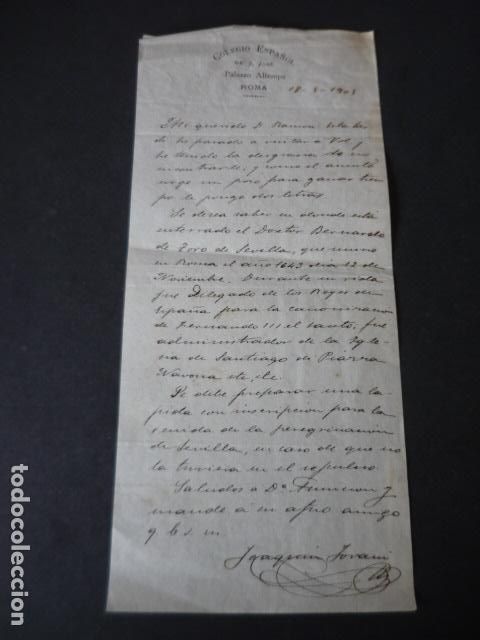 COLEGIO ESPAÑOL
DE S. JOSÉ
Palazzo Altemps
ROMA
18-3-1903
Mi querido D. Ramon esta tar
de he pasado a visitar a Vd. y
he tenido la desgracia de no
encontrarle; y como el asunto
urge un poco para ganar tiem
po le pongo dos letras.
Se desea saber en donde está
enterrado el Doctor Bernardo
de Toro de Sevilla, que murio
en Roma el año 1643 dia 12 de
Noviembre. Durante su vida
fue Delegado de los Reyes de
España para la canonizacion
de Fernando III el Santo, fue
administrador de la Igle
sia de Santiago de Piazza
Navona etc. etc.
Se debe preparar una la
pida con inscripcion para la
venida de la peregrinacion
de Sevilla, en caso de que no
la tuviera en el sepulcro
Saludos a Dª y
mande a su afmo amigo
q b s m
Joaquin Jovani
todocoleccion